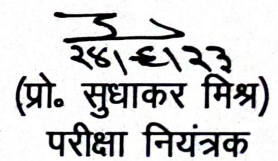 २४/६/२३
(प्रो० सुधाकर मिश्र)
परीक्षा नियंत्रक